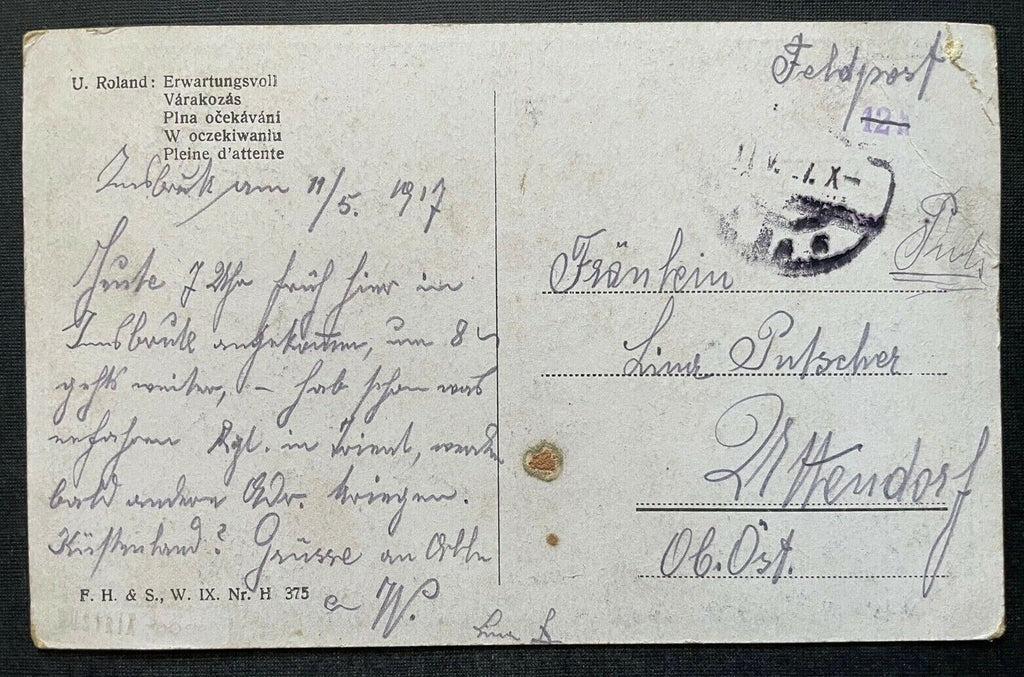 U. Roland: Erwartungsvoll
Várakozás
Plna očekávání
W oczekiwaniu
Pleine d'attente
Innsbruck am 11/5. 1917
Heute 7 Uhr früh hier in
Innsbruck angekommen, um 8 h
gehts weiter, – hab schon was
erfahren Rgt. in Trient, werde
bald andere Adr. kriegen.
Küstenland? Grüsse an Alle
W.
F. H. & S., W. IX. Nr. H 375
Feldpost
12
V. X
Fräulein
Lina Putscher
Uttendorf
Ob. Öst.